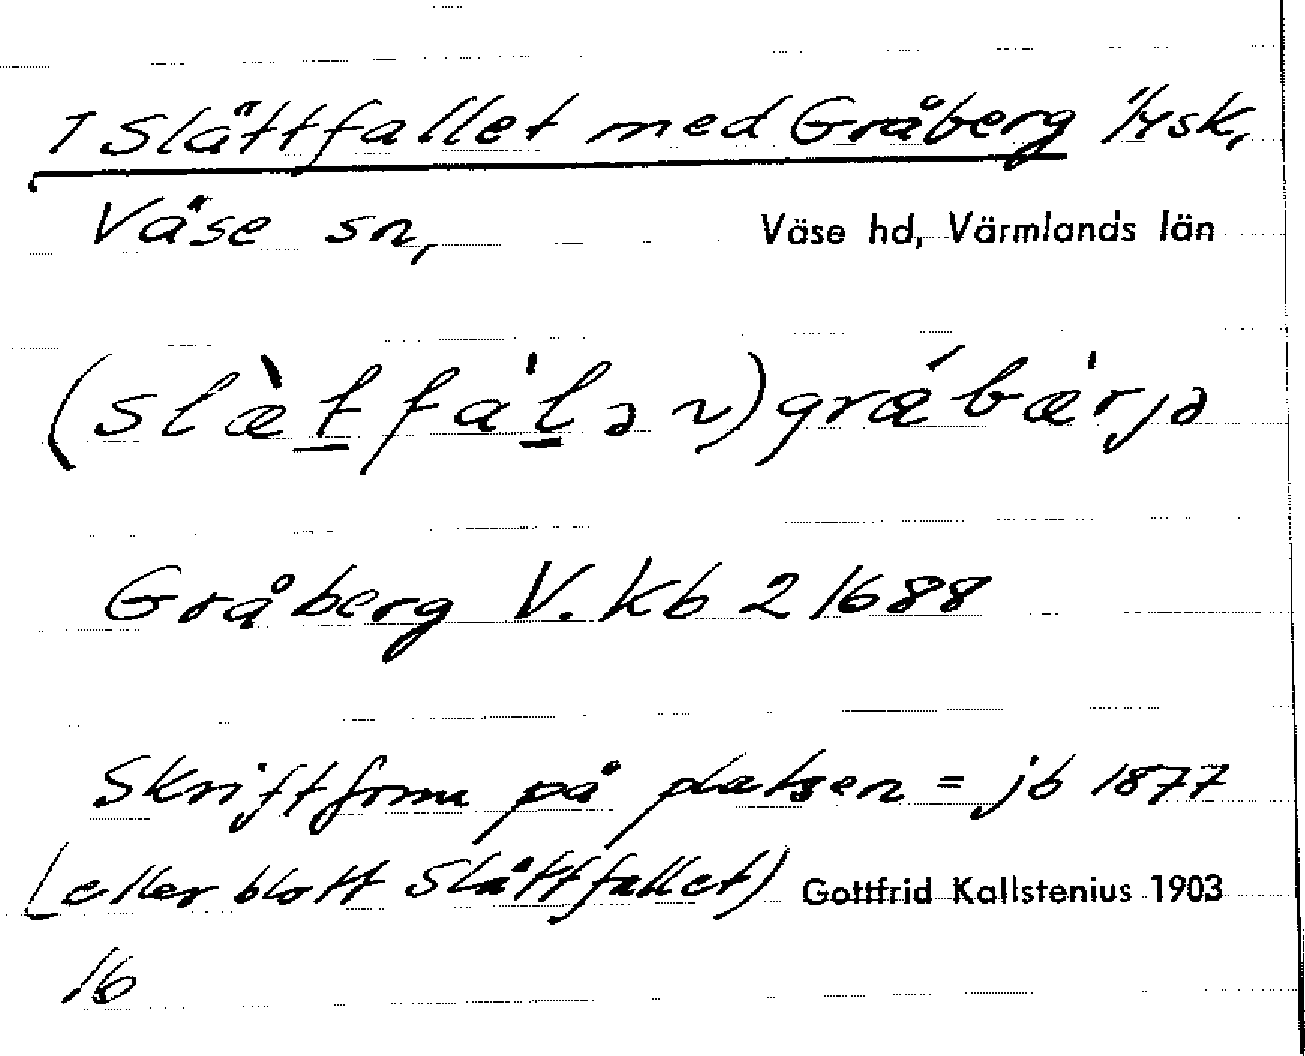 1 Slättfallet med Gråberg 1/4 sk,
Väse sn, Väse hd, Värmlands län
(slæ̀t̠ fa'l̠ə n) grǽ bæ'rjə
Gråberg V. Kb 2 1688
Skriftform på platsen = jb 1877
(eller blott Slättfallet) Gottfrid Kallstenius 1903
16